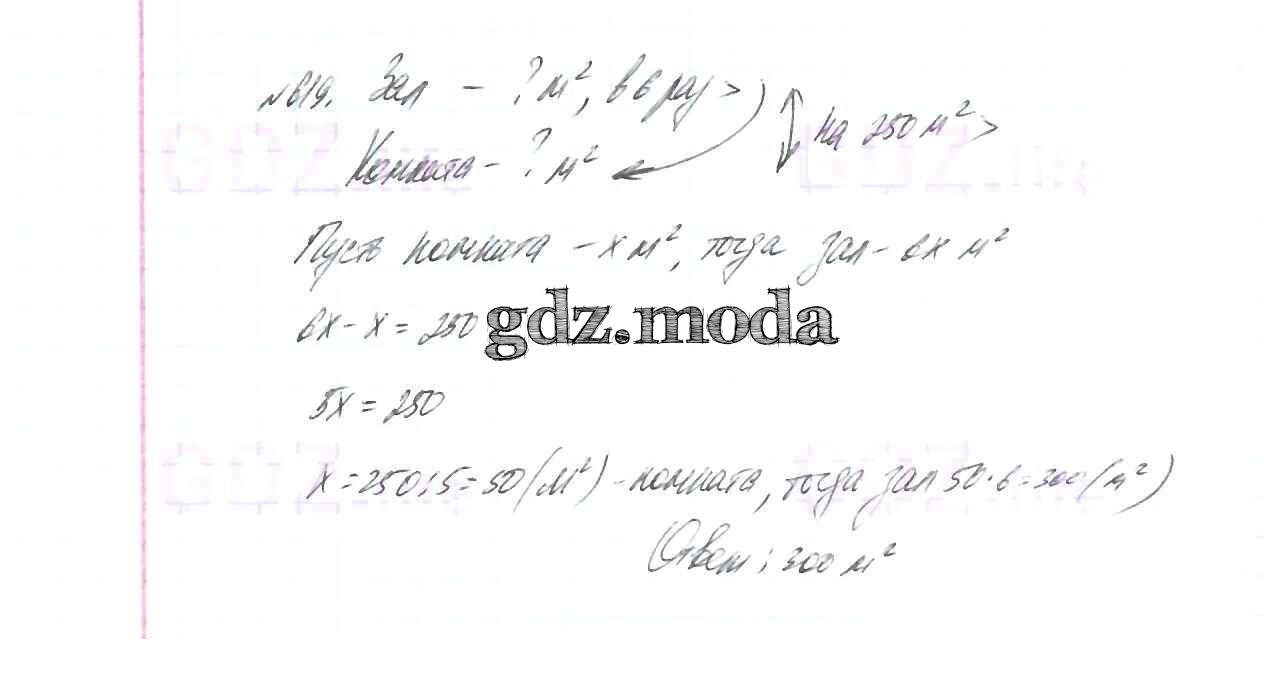 №619. Зал - ? м², в 6 раз >
на 250 м² >
Комната - ? м²
Пусть комната - x м², тогда зал - 6x м²
6x - x = 250
gdz.moda
5x = 250
x = 250 : 5 = 50 (м²) - комната, тогда зал 50 · 6 = 300 (м²)
Ответ : 300 м²